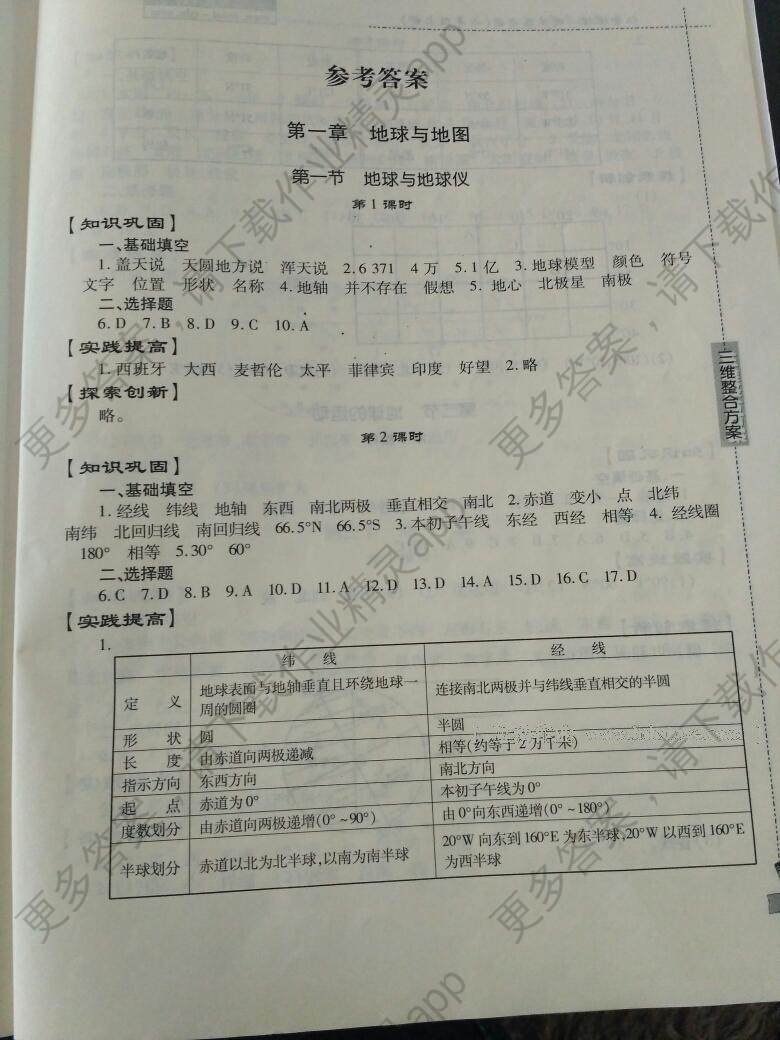 参考答案
第一章 地球与地图
第一节 地球与地球仪
第1课时
【知识巩固】
一、基础填空
1.盖天说 天圆地方说 浑天说 2.6 371 4万 5.1亿 3.地球模型 颜色 符号
文字 位置 形状 名称 4.地轴 并不存在 假想 5. 地心 北极星 南极
二、选择题
6.D 7.B 8.D 9.C 10.A
【实践提高】
1.西班牙 大西 麦哲伦 太平 菲律宾 印度 好望 2.略
【探索创新】
略。
第2课时
【知识巩固】
一、基础填空
1.经线 纬线 地轴 东西 南北两极 垂直相交 南北 2.赤道 变小 点 北纬
南纬 北回归线 南回归线 66.5°N 66.5°S 3.本初子午线 东经 西经 相等 4. 经线圈
180° 相等 5.30° 60°
二、选择题
6.C 7.D 8.B 9.A 10.D 11.A 12.D 13.D 14.A 15.D 16.C 17.D
【实践提高】
1.
纬 线 经 线
定 义 地球表面与地轴垂直且环绕地球一周的圆圈 连接南北两极并与纬线垂直相交的半圆
形 状 圆 半圆
长 度 由赤道向两极递减 相等(约等于2万千米)
指示方向 东西方向 南北方向
起 点 赤道为0° 本初子午线为0°
度数划分 由赤道向两极递增(0°~90°) 由0°向东西递增(0°~180°)
半球划分 赤道以北为北半球,以南为南半球 20°W向东到160°E为东半球,20°W以西到160°E为西半球
三维整合方案
更多答案，请下载作业精灵app
更多答案，请下载作业精灵app
更多答案，请下载作业精灵app
更多答案，请下载作业精灵app